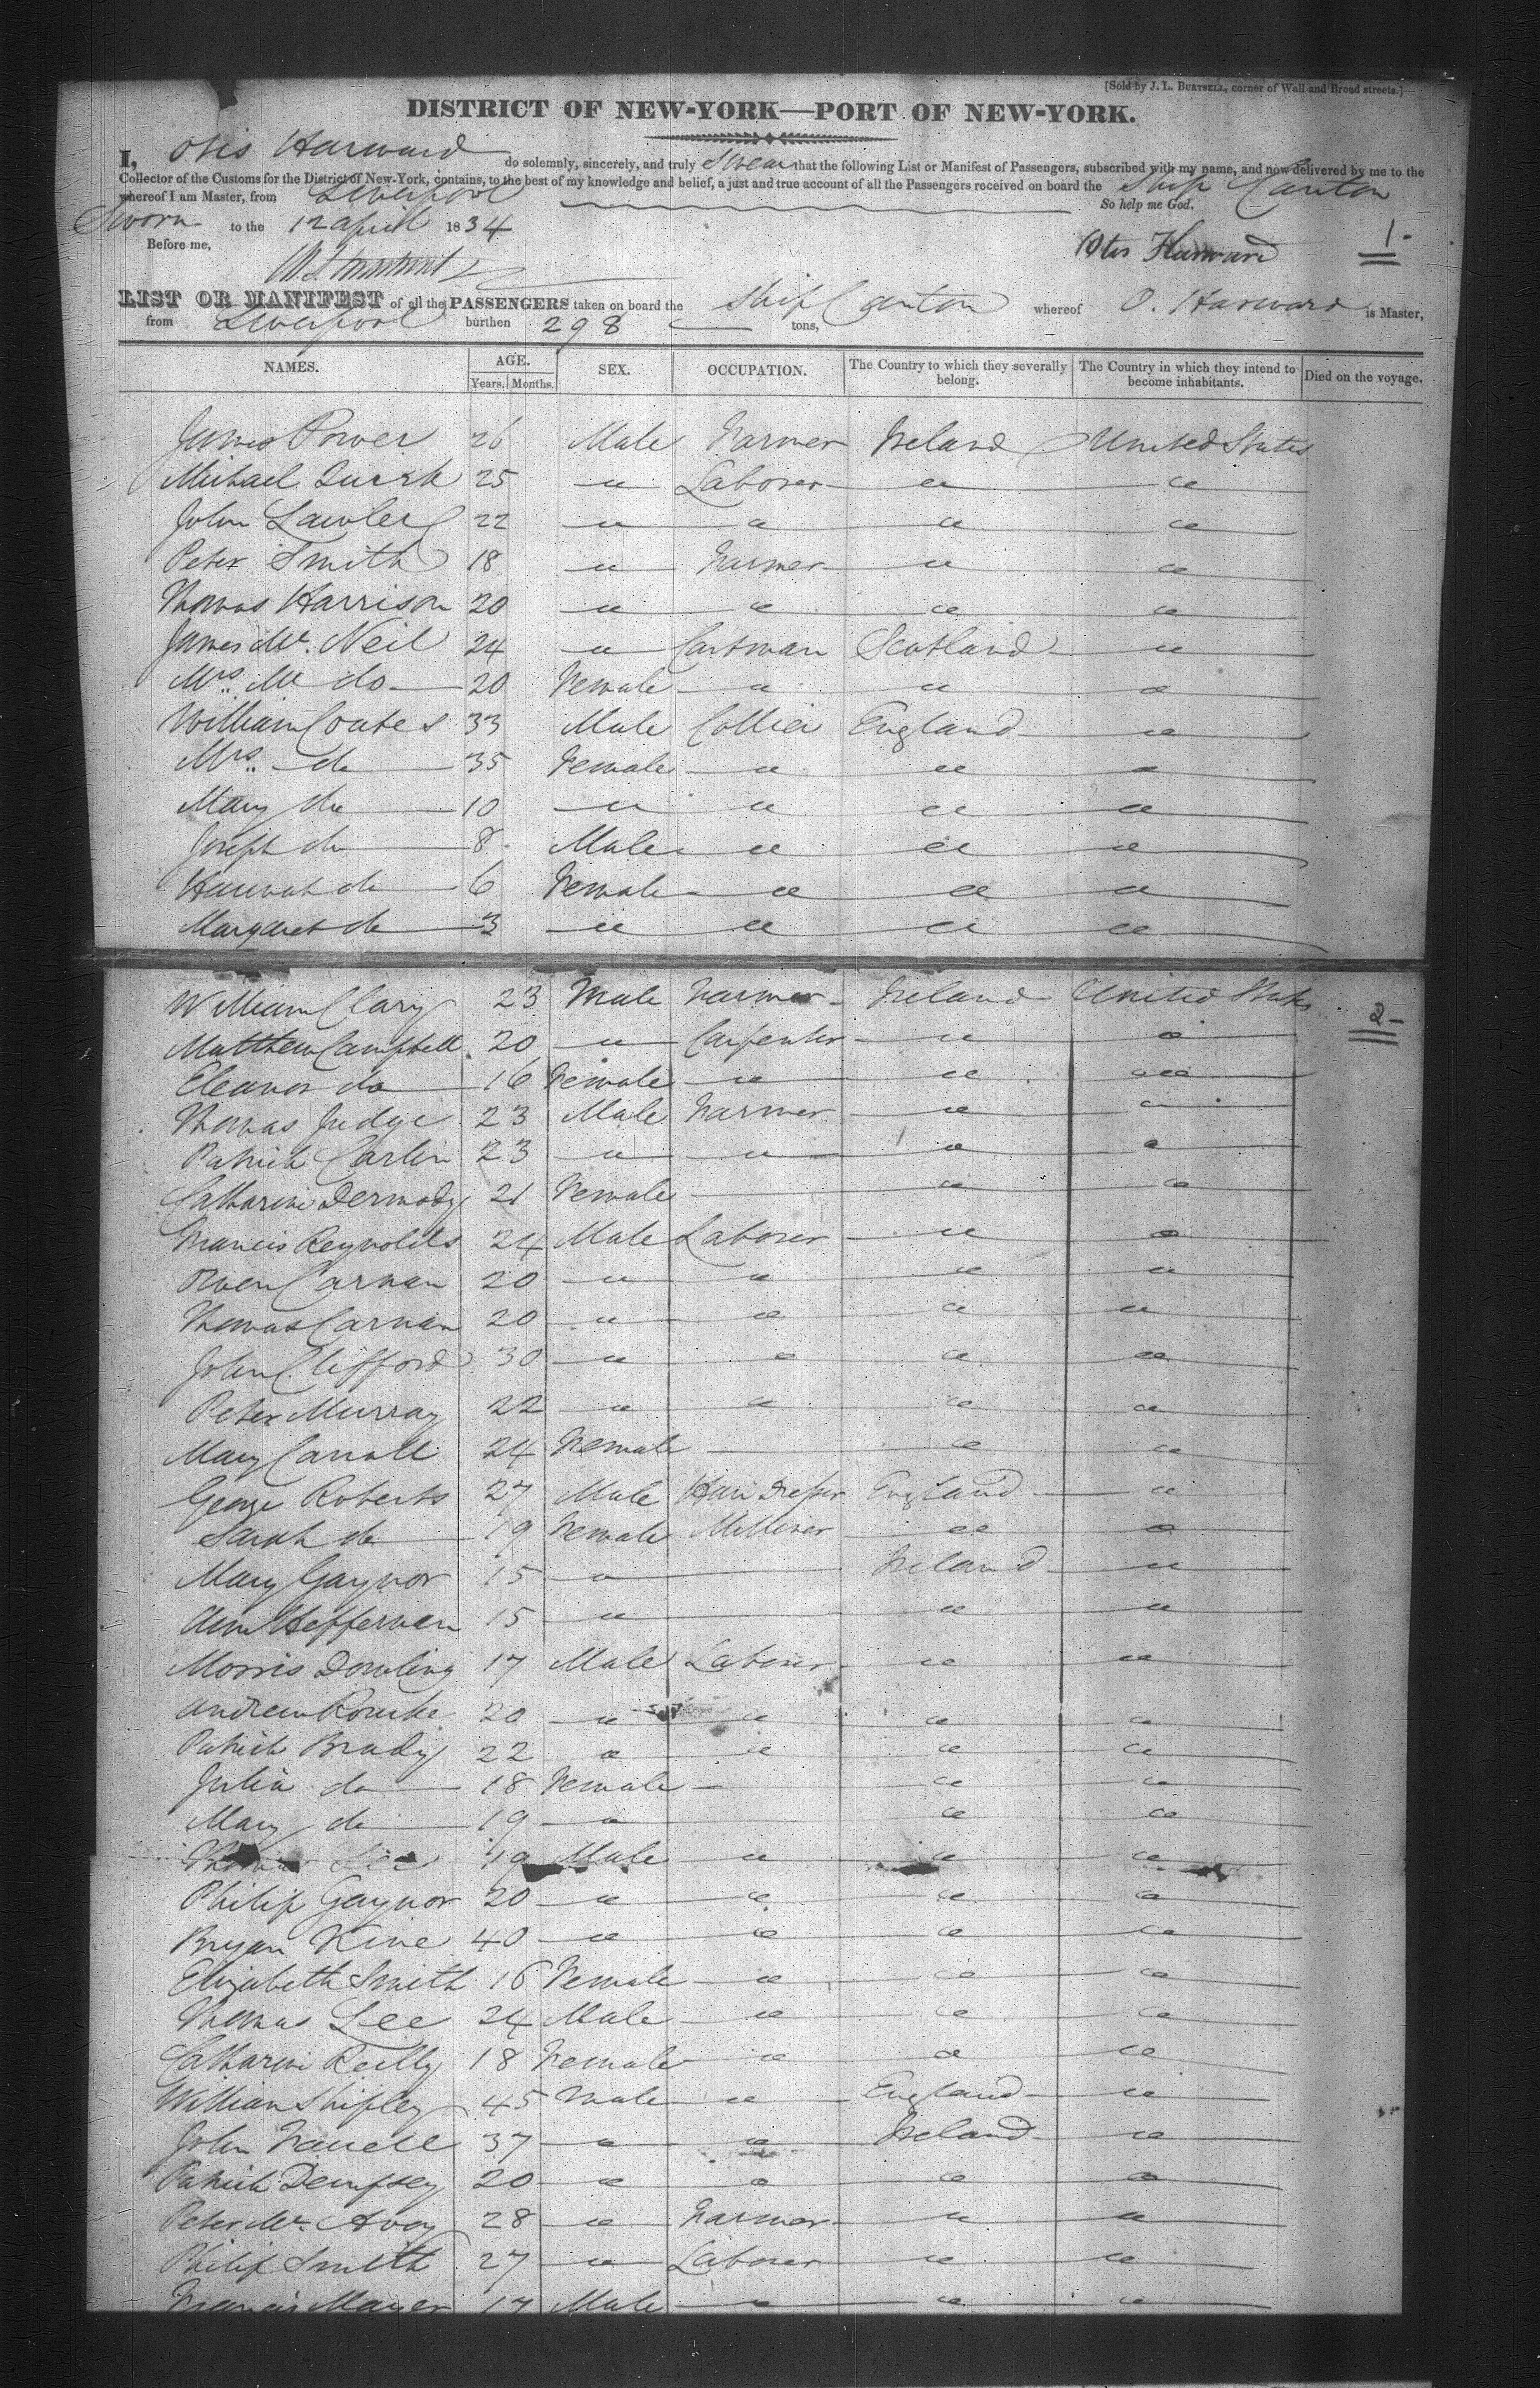 [Sold by J. L. BURTSELL, corner of Wall and Broad streets.]
DISTRICT OF NEW-YORK—PORT OF NEW-YORK.
I, Otis Harward do solemnly, sincerely, and truly Swear that the following List or Manifest of Passengers, subscribed with my name, and now delivered by me to the
Collector of the Customs for the District of New-York, contains, to the best of my knowledge and belief, a just and true account of all the Passengers received on board the Ship Canton
whereof I am Master, from Liverpool So help me God.
Sworn to the 12 april 1834
Before me, Otis Harward 1-
LIST OR MANIFEST of all the PASSENGERS taken on board the Ship Canton whereof O. Harward is Master,
from Liverpool burthen 298 tons,
NAMES. AGE. SEX. OCCUPATION. The Country to which they severally belong. The Country in which they intend to become inhabitants. Died on the voyage.
Years. Months.
James Power 26 Male Farmer Ireland United States
Michael Quirk 25 " Laborer " "
John Lawler 22 " " " "
Peter Smith 18 " Farmer " "
Thomas Harrison 20 " " " "
James Mc. Neil 24 " Cartman Scotland "
Mrs. Mc do 20 Female " " "
William Coates 33 Male Collier England "
Mrs. do 35 Female " " "
Mary do 10 " " " "
Joseph do 8 Male " " "
Hannah do 6 Female " " "
Margaret do 3 " " " "
William Clary 23 Male Farmer Ireland United States 2-
Matthew Campbell 20 " Carpenter " "
Eleanor do 16 Female " " "
Thomas Judge 23 Male Farmer " "
Patrick Carlin 23 " " " "
Catharine Dermody 21 Female " "
Francis Reynolds 24 Male Laborer " "
Owen Carnan 20 " " " "
Thomas Carnan 20 " " " "
John Clifford 30 " " " "
Peter Murray 22 " " " "
Mary Carroll 24 Female " "
George Roberts 27 Male Hair Dresser England "
Sarah do 19 Female Milliner " "
Mary Gaynor 15 " Ireland "
Ann Heffernan 15 " " "
Morris Dowling 17 Male Laborer " "
Andrew Rourke 20 " " " "
Patrick Brady 22 " " " "
Julia do 18 Female " "
Mary do 19 " " "
Thomas Lee 19 Male " " "
Philip Gaynor 20 " " " "
Bryan Kine 40 " " " "
Elizabeth Smith 16 Female " " "
Thomas Lee 24 Male " " "
Catharine Reilly 18 Female " " "
William Shipley 45 Male " England "
John Farrell 37 " " Ireland "
Patrick Dempsey 20 " " " "
Peter Mc. Avoy 28 " Farmer " "
Philip Smith 27 " Laborer " "
Francis Mayer 17 Male " " "